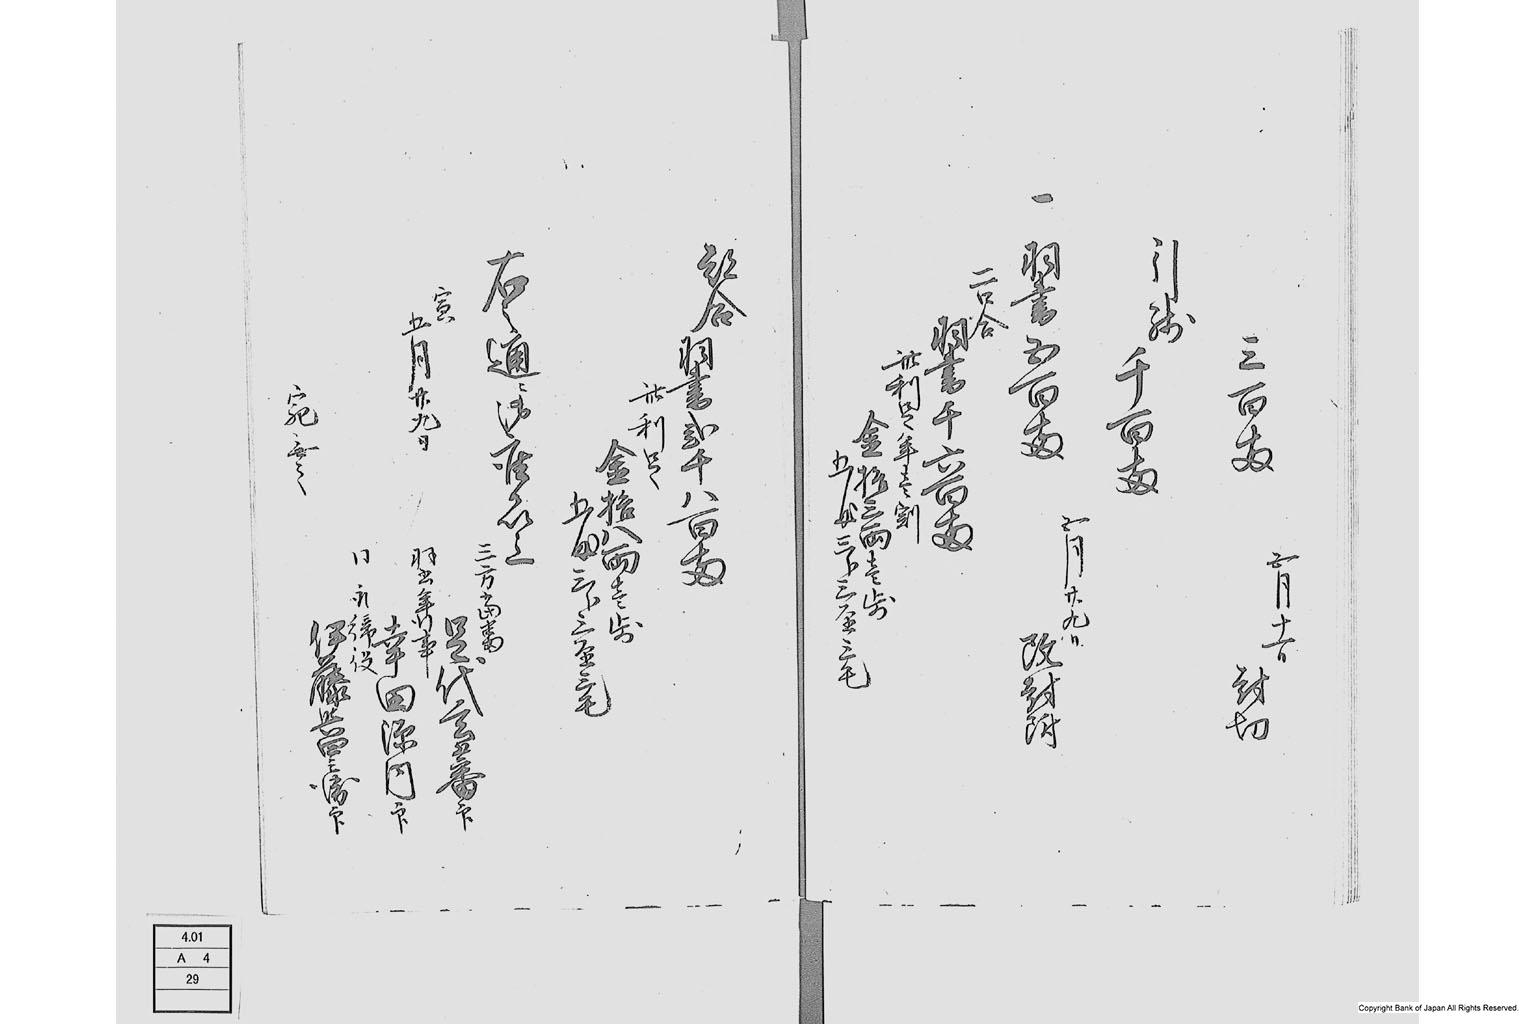 三百両
五月十一日
封切
引残
千百両
五月廿九日
改封附
一 羽書五百両
二口合
羽書千六百両
此利足年壱割
金拾三両壱歩
五匁三分三厘三毛
都合
羽書弐千八百両
此利足
金拾八両壱歩
五匁三分三厘三毛
右之通ニ御座候以上
寅
五月廿九日
三方当番
足代玄蕃印
羽書年行事
幸田源内印
同
伊藤
印
宛
4.01
A 4
29
Copyright Bank of Japan All Rights Reserved.